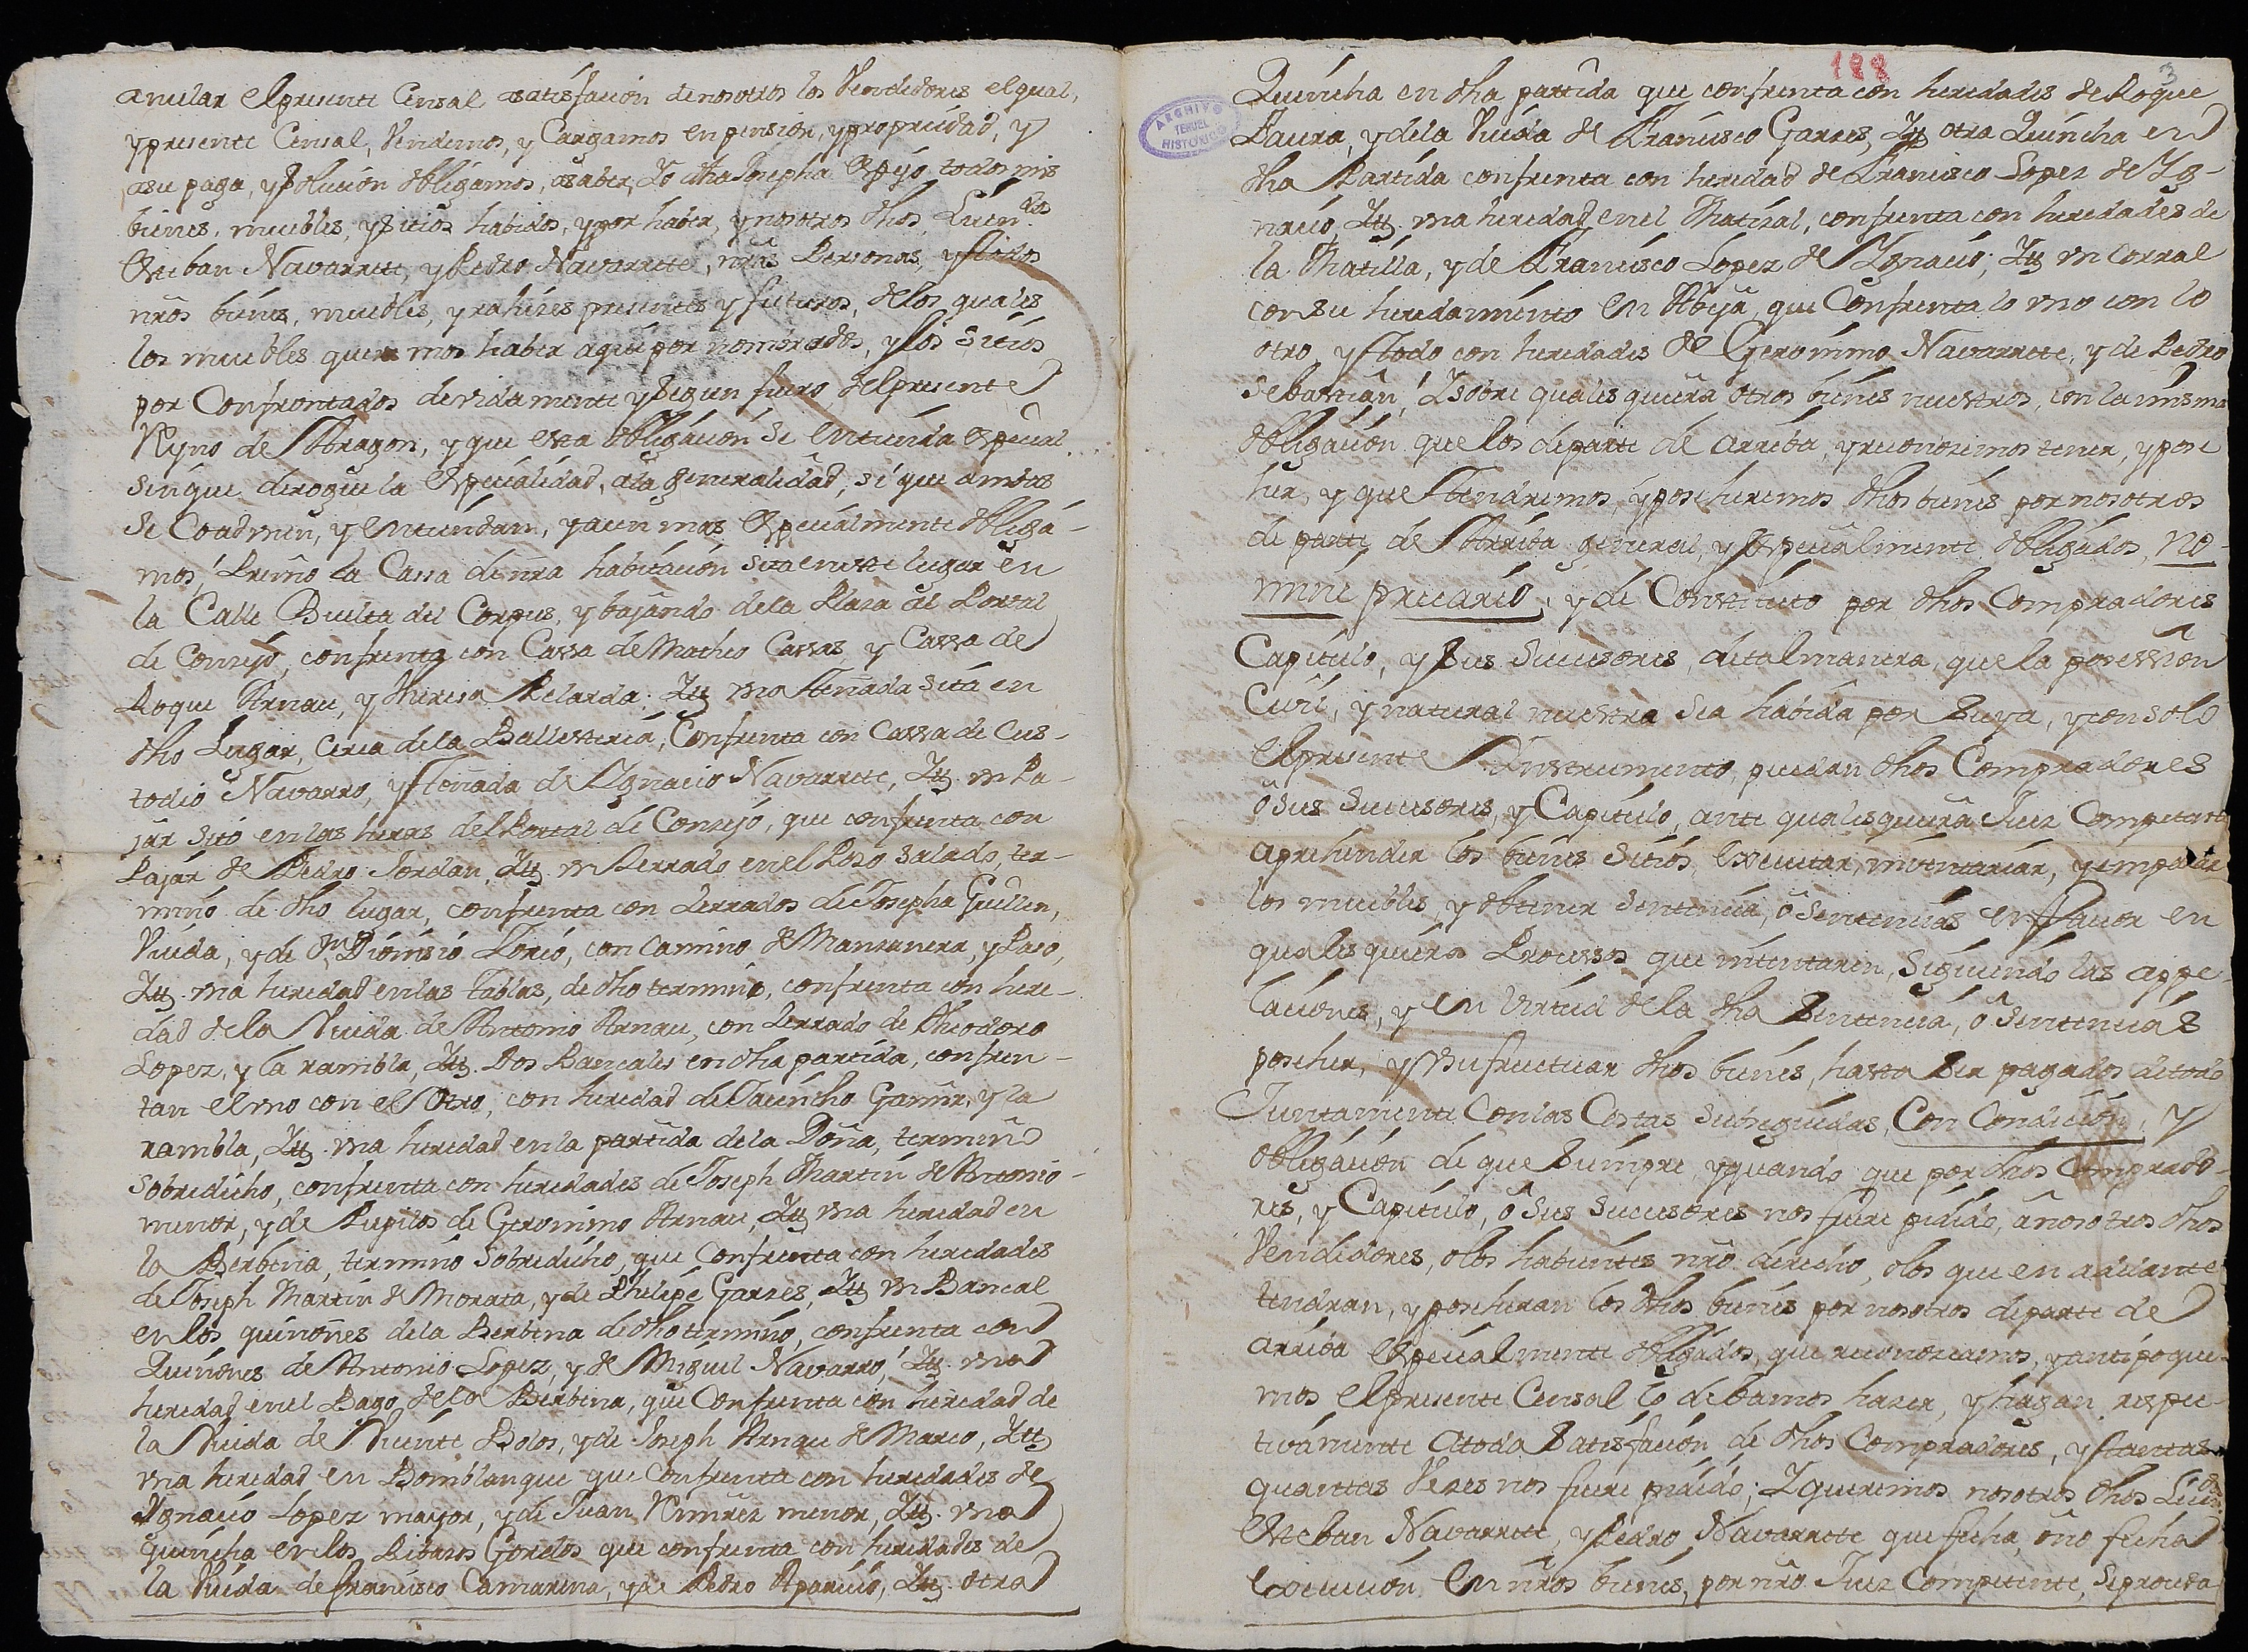 ancelar el presente Censal a satisfacion de nosotros los Vendedores el qual,
y presente Censal, Vendemos, y Cargamos en pension, y propriedad, y
a su paga, y solucion obligamos, a saber, Yo dha Josepha Espejo todos mis
bienes, muebles, y sitios habidos, y por haber, y nosotros dhos Licen.dos
Esteban Navarrete, y Pedro Navarrete, nras Personas, y todos
nros bienes, muebles, y rahizes presentes y futuros, de los quales
los muebles queremos haber aqui por nombrados, y los sitios
por Confrontados devidamente y segun fuero del presente
Reyno de Aragon, y que esta obligacion se entienda especial
sin que derogue la especialidad, a la generalidad, si que ambas
se Coadiuven, y entiendan, y aun mas especialmente obliga-
mos, Primo la Cassa de nra habitacion sita en este lugar en
la Calle Buelta del Corpus, y bajando de la Plaza al Portal
de Consejo, confrenta con Cassa de Matheo Cassas y Cassa de
Roque Arnau, y Theresa Pelarda. Itt. una teñada sita en
dho Lugar, cerca de la Ballesteria, Confrenta con Cassa de Cus-
todio Navarro, y teñada de Ygnacio Navarrete, Itt. un Pa-
jar sito en las heras del Portal de Consejo, que confrenta con
Pajar de Pedro Jordan, Itt. un Zerrado en el Pozo salado, ter-
mino de dho lugar, confrenta con Zerrados de Josepha Guillen,
Viuda, y de Dn Dionisio Torio, con camino de Manzanera, y Paso,
Itt. una heredad en las tablas, de dho termino, confrenta con here-
dad de la Viuda de Antonio Arnau, con Zerrado de Theodoro
Lopez, y la rambla, Itt. Dos Bancales en dha partida, confren-
tan el uno con el otro, con heredad de Juencho Gamir, y la
rambla, Itt. una heredad en la partida de la Doña, termino
sobredicho, confrenta con heredades de Joseph Martin de Antonio
menor, y de Pupilos de Geronimo Arnau, Itt. una heredad en
la Berbena, termino sobredicho, que confrenta con heredades
de Joseph Martin de Morata, y de Phelipe Garzes, Itt. un Bancal
en los quiñones de la Berbena de dho termino, confrenta con
Quiñones de Antonio Lopez, y de Miguel Navarro, Itt. una
heredad en el Bago de la Berbena, que Confrenta con heredad de
la Viuda de Vicente Bolos, y de Joseph Arnau de Marco, Itt.
una heredad en Bomblanque que Confrenta con heredades de
Ygnacio Lopez mayor, y de Juan Ximenez menor, Itt. una
quincha en los Ribazos Gordos que confrenta con heredades de
la Viuda de Francisco Camarena, y de Pedro Aparicio, Itt. otra
188
3
ARCHIVO
HISTORICO
TERUEL
Quincha en dha partida que confrenta con heredades de Roque
Laura, y de la Viuda de Francisco Garces, Itt. otra Quincha en
dha Partida confrenta con heredad de Francisco Lopez de Yg-
nacio, Itt. una heredad en el Matizal, confrenta con heredades de
la Matilla, y de Francisco Lopez de Ygnacio; Itt. un Corral
con su heredamiento en Abeja, que Confrenta lo uno con lo
otro, y todo con heredades de Geronimo Navarrete, y de Pedro
Sebastian, Y sobre qualesquiera otros bienes nuestros, con la misma
obligacion que los de parte de arriba, y reconozemos tener, y pose
her, y que tendremos, y poseheremos dhos bienes por nosotros
de parte de Arriba general, y especialmente obligados, no-
mine precario, y de Constituto por dhos Compradores
Capitulo, y sus Sucesores, de tal manera, que la posession
Civil, y natural nuestra sea habida por suya, y con solo
el presente Instrumento, puedan dhos Compradores
ô sus Sucesores, y Capitulo, ante qualesquiera Juez Competente
aprehender los bienes sitios, executar, inventariar, y emparar
los muebles, y obtener sentencia, ô sentencias en favor en
qualesquiera Processos que intentaren, siguiendo las appe-
laciones, y en virtud de la dha Sentencia, ô sentencias
poseher, y Usufructuar dhos bienes, hasta ser pagados de todo
Juntamente con las Costas subseguidas, Con Condicion, y
obligacion de que siempre, y quando que por dhos Comprado-
res, y Capitulo, ô sus Sucesores nos fuere pidido, a nosotros dhos
Vendedores, o los habientes nro derecho, o los que en adelante
tendran, y poseheran los dhos bienes por nosotros de parte de
arriba especialmente obligados, que reconozcamos, y antipoque-
mos el presente Censal lo debamos hazer, y hagan respec-
tivamente a toda Satisfacion de dhos Compradores, y tantas
quantas Vezes nos fuere pidido; Y queremos nosotros dhos Licen.dos
Esteban Navarrete, y Pedro Navarrete que fecha, ô no fecha
execucion en nros bienes, por nro Juez Competente, se proceda